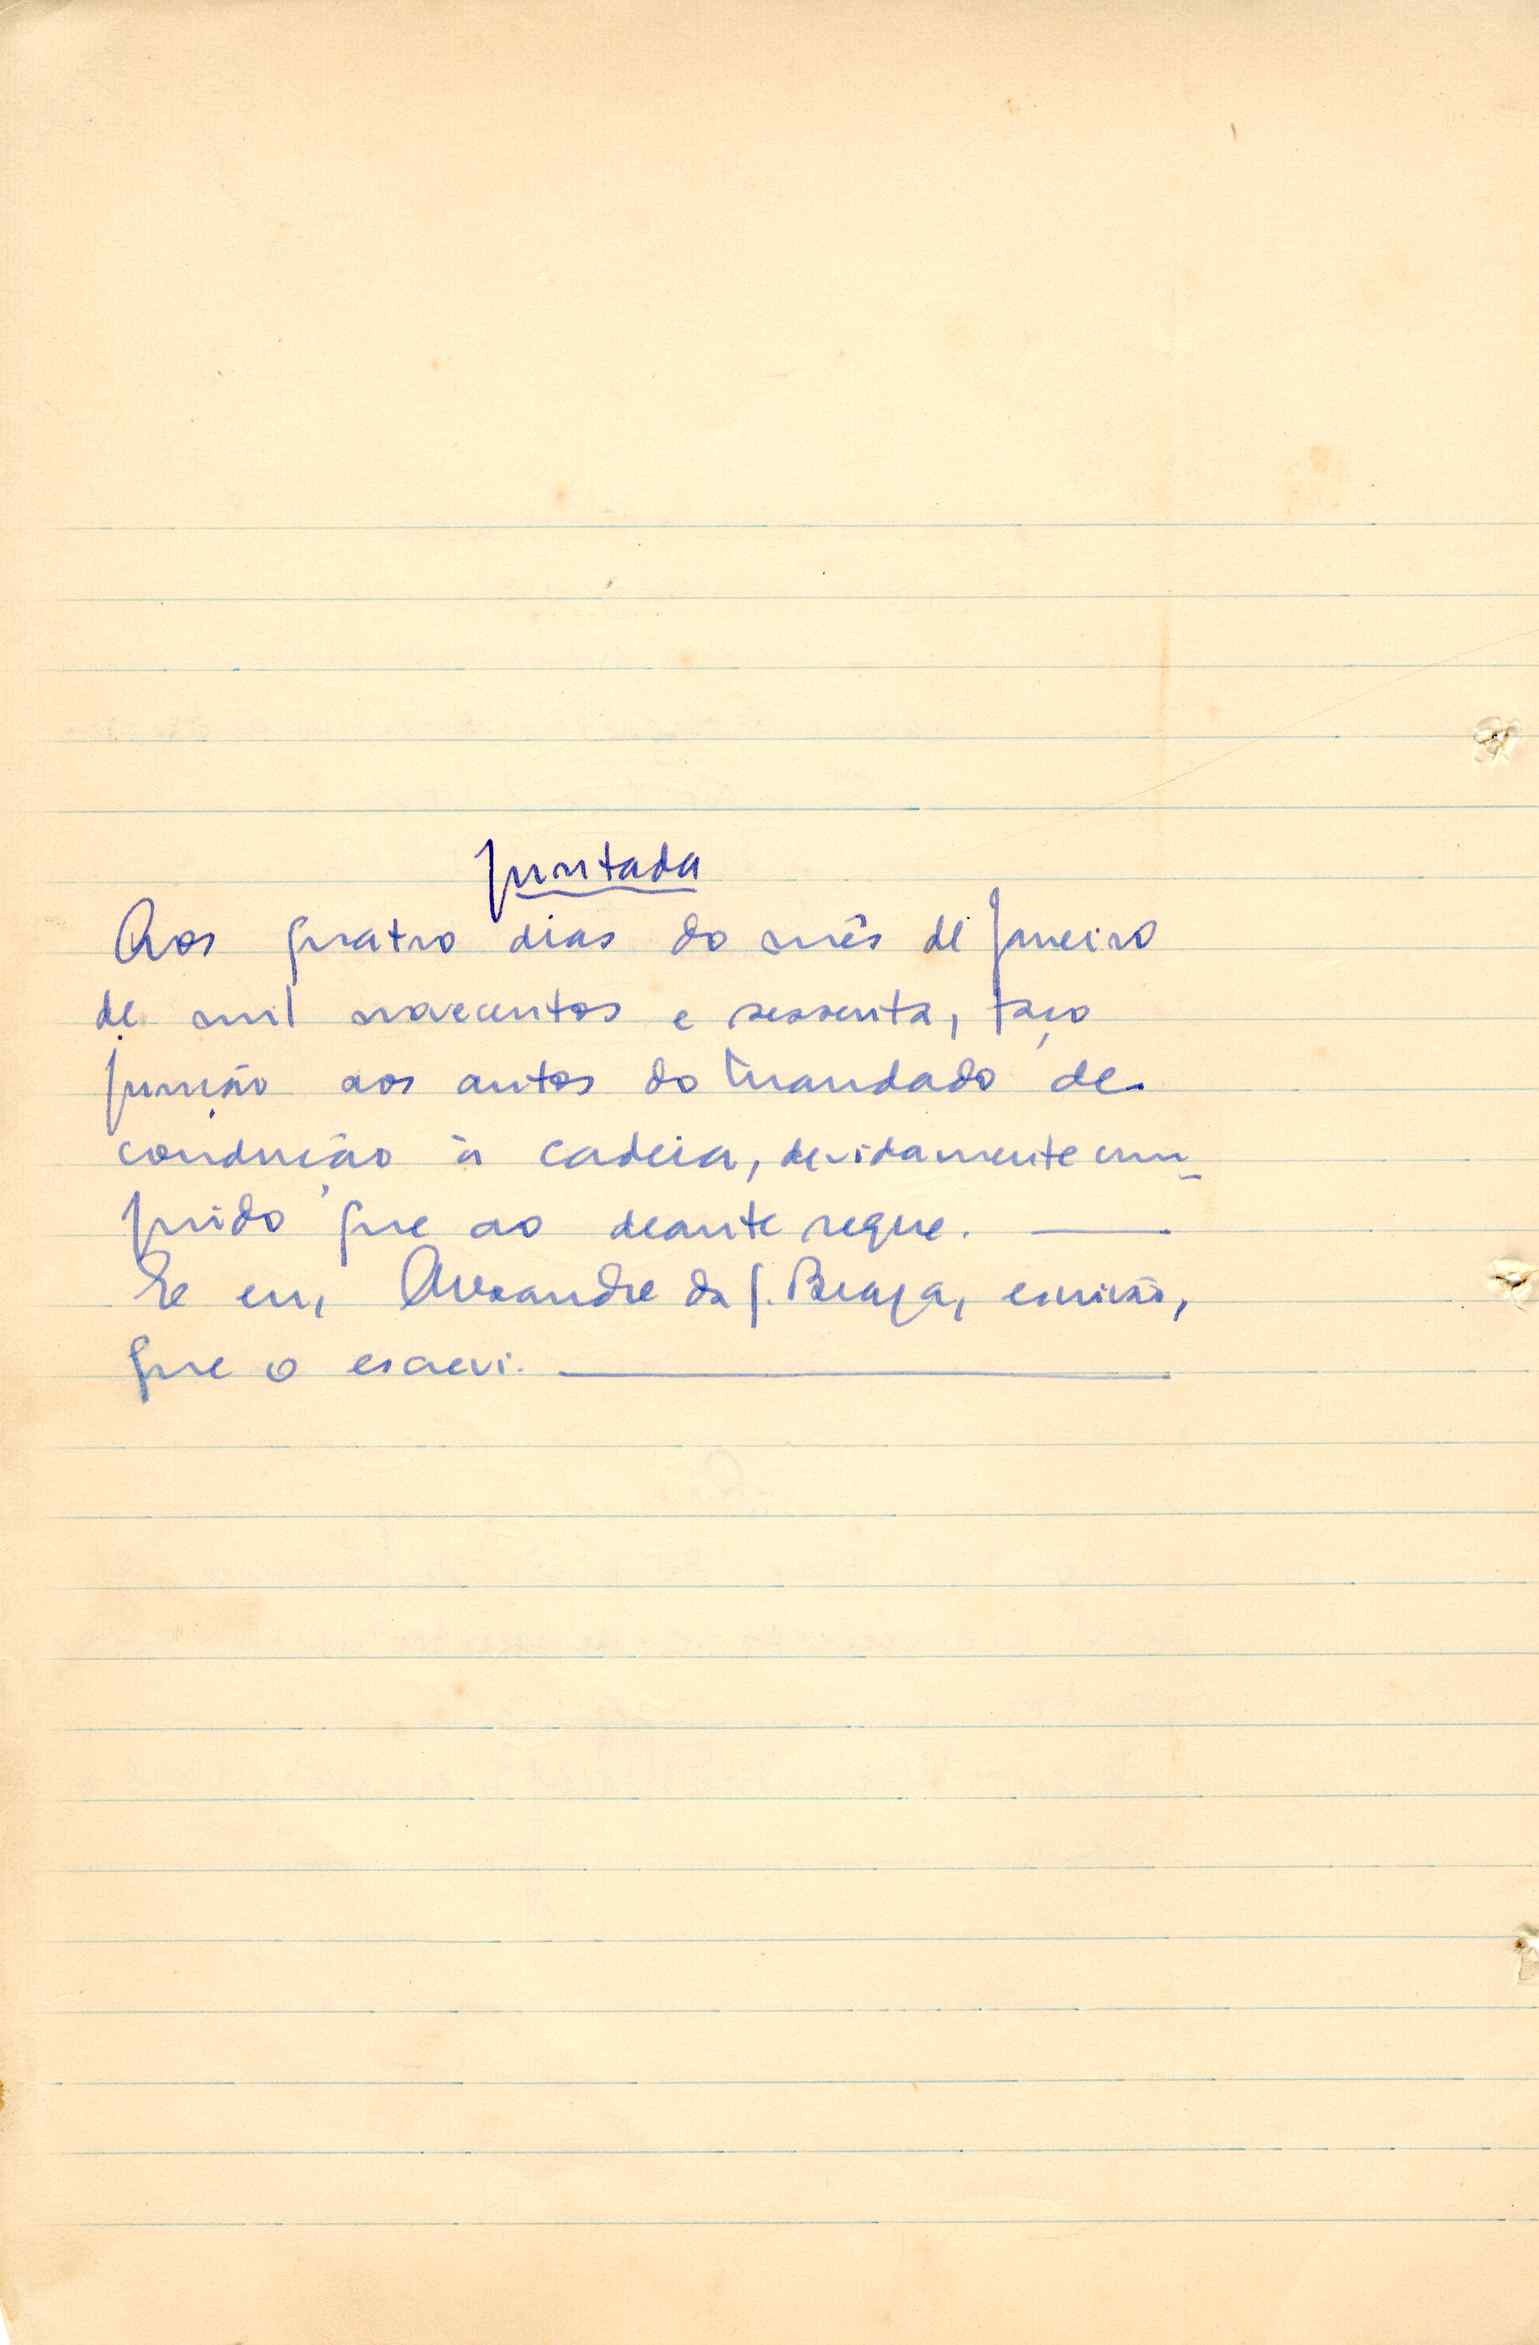 Juntada
Aos quatro dias do mês de Janeiro
de mil novecentos e sessenta, faço
junção aos autos do mandado de
condução à cadeia, devidamente cum-
prido que ao deante segue.
E eu, Alexandre da S. Braga, escrivão,
que o escrevi.